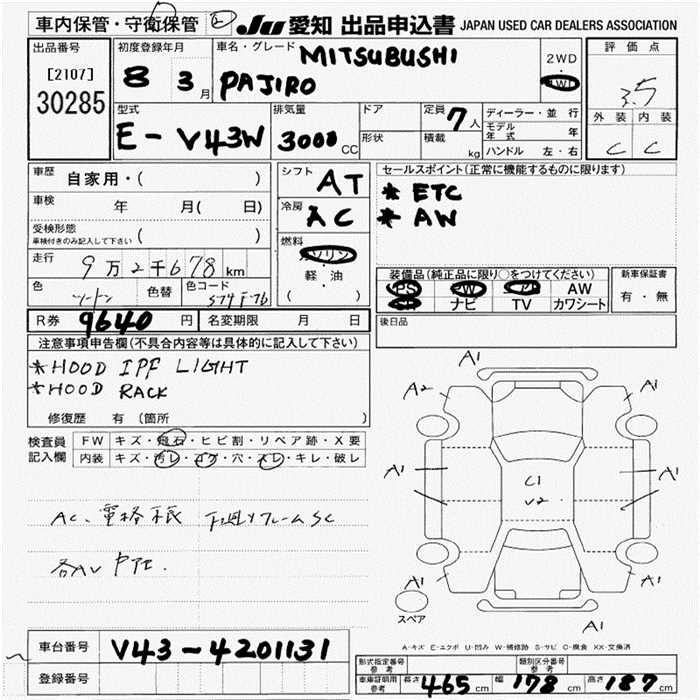 車内保管・守衛保管 JU 愛知 出品申込書 JAPAN USED CAR DEALERS ASSOCIATION
出品番号
[2107]
30285
初度登録年月
8 3月
車名・グレード
MITSUBUSHI
PAJIRO
2WD
・
4WD
評価点
3.5
外装 内装
C C
型式
E-V43W
排気量
3000 CC
ドア
形状
定員
7人
積載
kg
ディーラー・並行
モデル年式 年
ハンドル 左・右
車歴
自家用・( )
車検
年 月( 日)
受検形態
車検付きのみ記入して下さい
( )
走行
9万2千678 km
色
ツートン
色替
色コード
シフト
AT
冷房
AC
燃料
ガソリン
・
軽・油
( )
セールスポイント(正常に機能するものに限ります)
* ETC
* AW
装備品(純正品に限り○をつけてください)
PS PW AW
SR ナビ TV カワシート
新車保証書
有・無
R券 9640 円 名変期限 月 日
後日品
注意事項申告欄(不具合内容等は具体的に記入して下さい)
*HOOD IPF LIGHT
*HOOD RACK
修復歴 有(箇所 )
検査員
記入欄
FW キズ・飛石・ヒビ割・リペア跡・X要
内装 キズ・汚レ・コゲ・穴・スレ・キレ・破レ
AC、電格 下廻りフレームSC
A1
A2 A1
A1 A1
C1
V2
A1 A1
A1
スペア
A-キズ E-エクボ U-凹み W-補修跡 S-サビ C-腐食 XX-交換済
車台番号 V43-4201131
登録番号
形式指定番号
参考
類別区分番号
参考
車庫証明用
参考
長さ 465 cm 幅 178 cm 高さ 187 cm